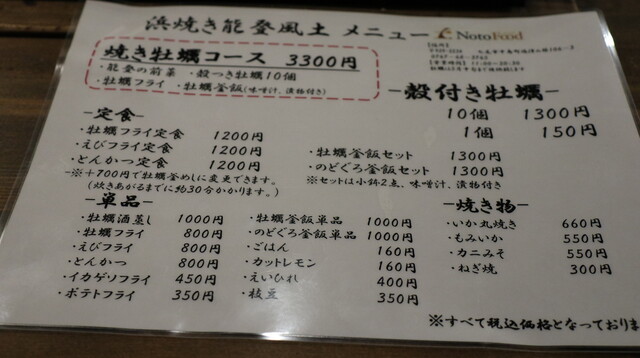 浜焼き能登風土 メニュー
NotoFood
焼き牡蠣コース 3300円
・能登の前菜 ・殻つき牡蠣10個
・牡蠣フライ ・牡蠣釜飯(味噌汁、漬物付き)
-殻付き牡蠣-
10個 1300円
1個 150円
-定食-
・牡蠣フライ定食 1200円
・えびフライ定食 1200円
・とんかつ定食 1200円
※+700円で牡蠣釜めしに変更できます。
(炊きあがるまでに約30分かかります。)
・牡蠣釜飯セット 1300円
・のどぐろ釜飯セット 1300円
※セットは小鉢2点、味噌汁、漬物付き
-単品-
・牡蠣酒蒸し 1000円
・牡蠣フライ 800円
・えびフライ 800円
・とんかつ 800円
・イカゲソフライ 450円
・ポテトフライ 350円
・牡蠣釜飯単品 1000円
・のどぐろ釜飯単品 1000円
・ごはん 160円
・カットレモン 160円
・えいひれ 400円
・枝豆 350円
-焼き物-
・いか丸焼き 660円
・もみいか 550円
・カニみそ 550円
・ねぎ焼 300円
※すべて税込価格となっておりま